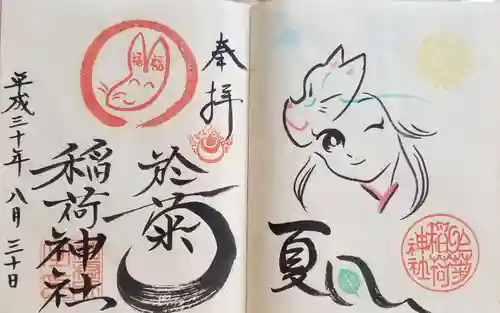 奉拝
於菊
稲荷神社
平成三十年八月三十日
福福
夏
於菊
稲荷
神社